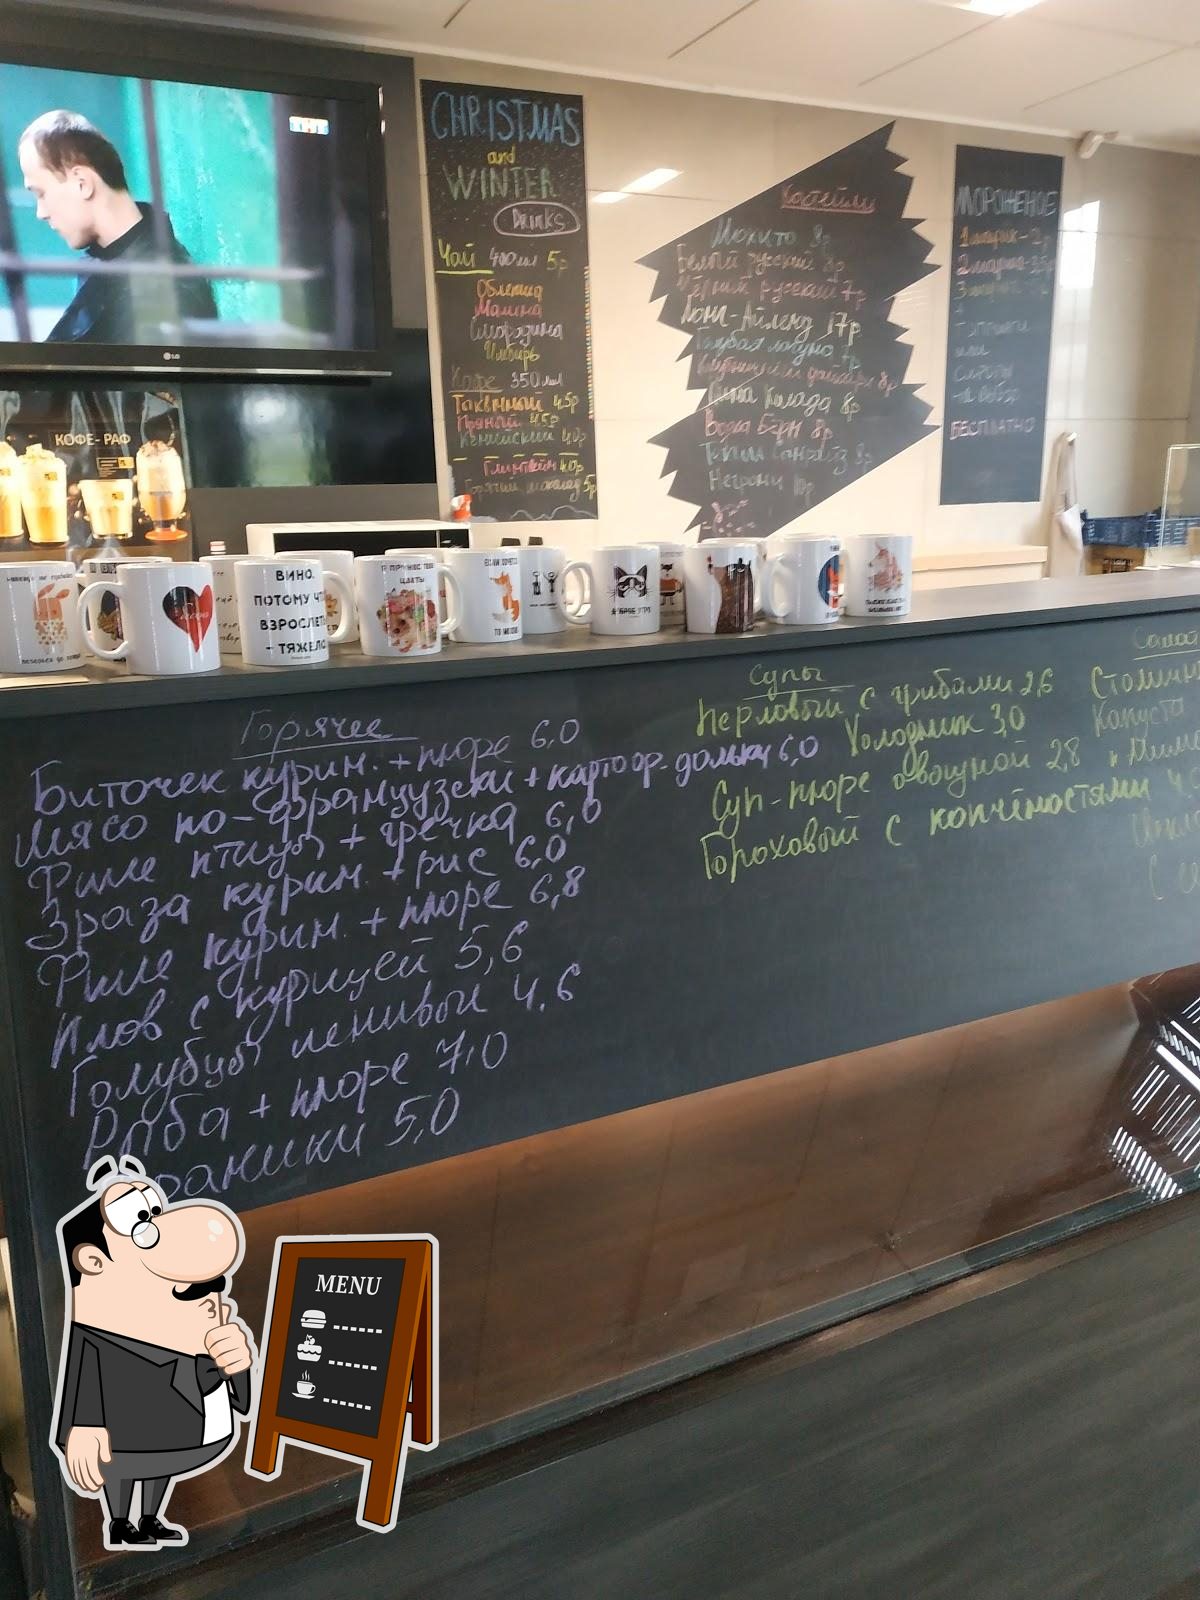 CHRISTMAS
and
WINTER
DRINKS
Чай 400мл 5р
Облепиха
Малина
Смородина
Имбирь
Кофе 350мл
Тыквенный 4.5р
Пряный 4.5р
Кенийский 4.0р
Глинтвейн 4.0р
Горячий шоколад 5р
Коктейли
Мохито 8р
Белый русский 8р
Чёрный русский 7р
Лонг-Айленд 17р
Голубая лагуна 7р
Клубничный дайкири 8р
Пина Колада 8р
8р
Текила Санрайз 8р
Негрони 10р
МОРОЖЕНОЕ
1 шарик - 2р
2 шарика - 3.5р
3 шарика
+
Топпинги
или
сиропы
на выбор
БЕСПЛАТНО
LG
КОФЕ-РАФ
ВИНО.
ПОТОМУ ЧТ
ВЗРОСЛЕТ
- ТЯЖЕЛО
ЦВЕТЫ
ЕСЛИ ХОЧЕТС
ТО МОЖН
ДОБРОЕ УТРО
Горячее
Биточек курин. + пюре 6,0
Мясо по-французски + картоф. дольки 6,0
Филе птицы + гречка 6,0
Зраза курин. + рис 6,0
Филе курин. + пюре 6,8
Плов с курицей 5,6
Голубцы ленивые 4.6
Рыба + пюре 7,0
Драники 5,0
Супы
Перловый с грибами 2,6
Холодник 3,0
Суп-пюре овощной 2,8
Гороховый с копчёностями
Салат
Столичн
Капуста
MENU